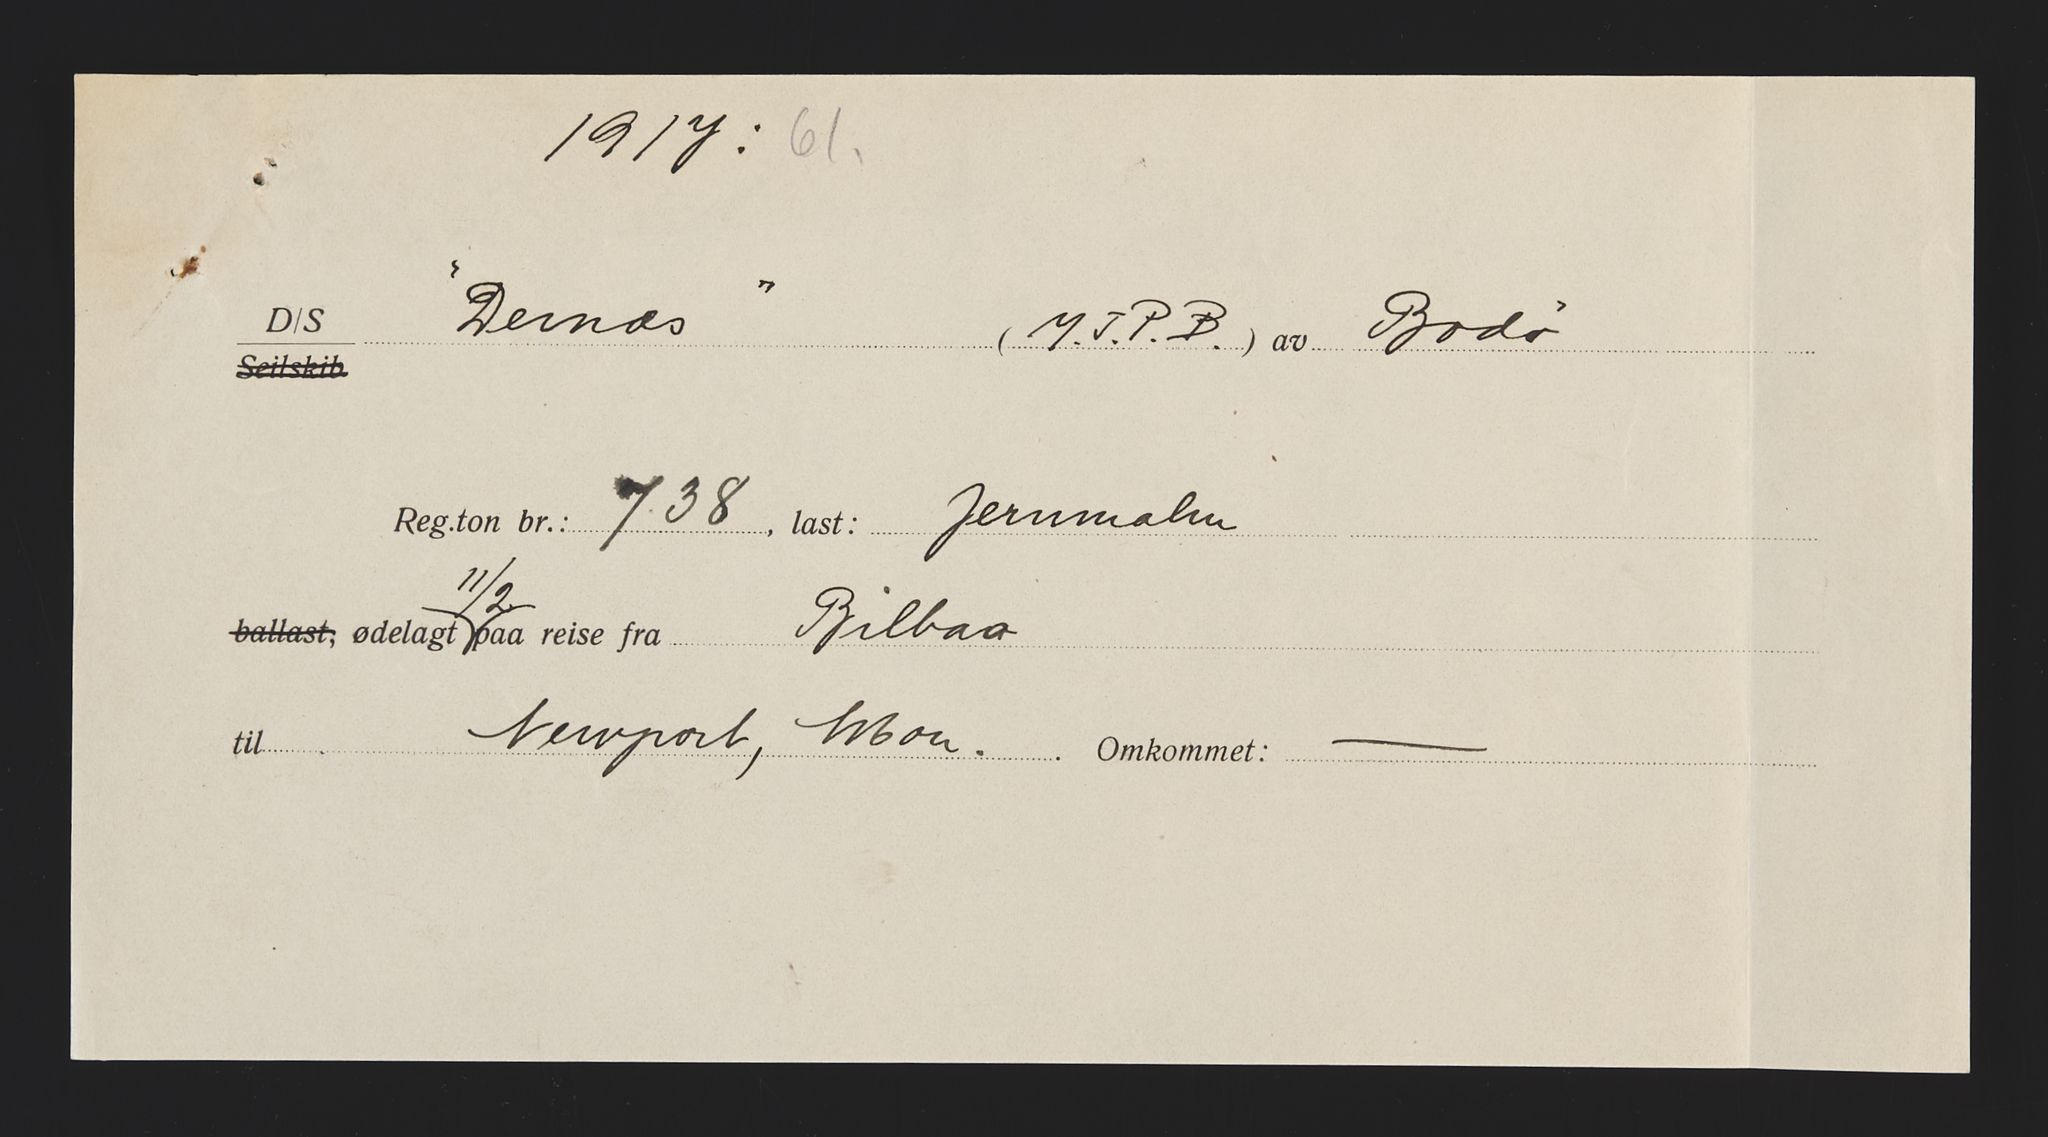 1917: 61.
D/S "Dernæs" (M.J.P.B.) av Bodø
Seilskib.
Reg.ton br.: 738, last: Jernmalm
11/2
ballast, ødelagt paa reise fra Bilbao
til Newport, Mon. Omkommet: —